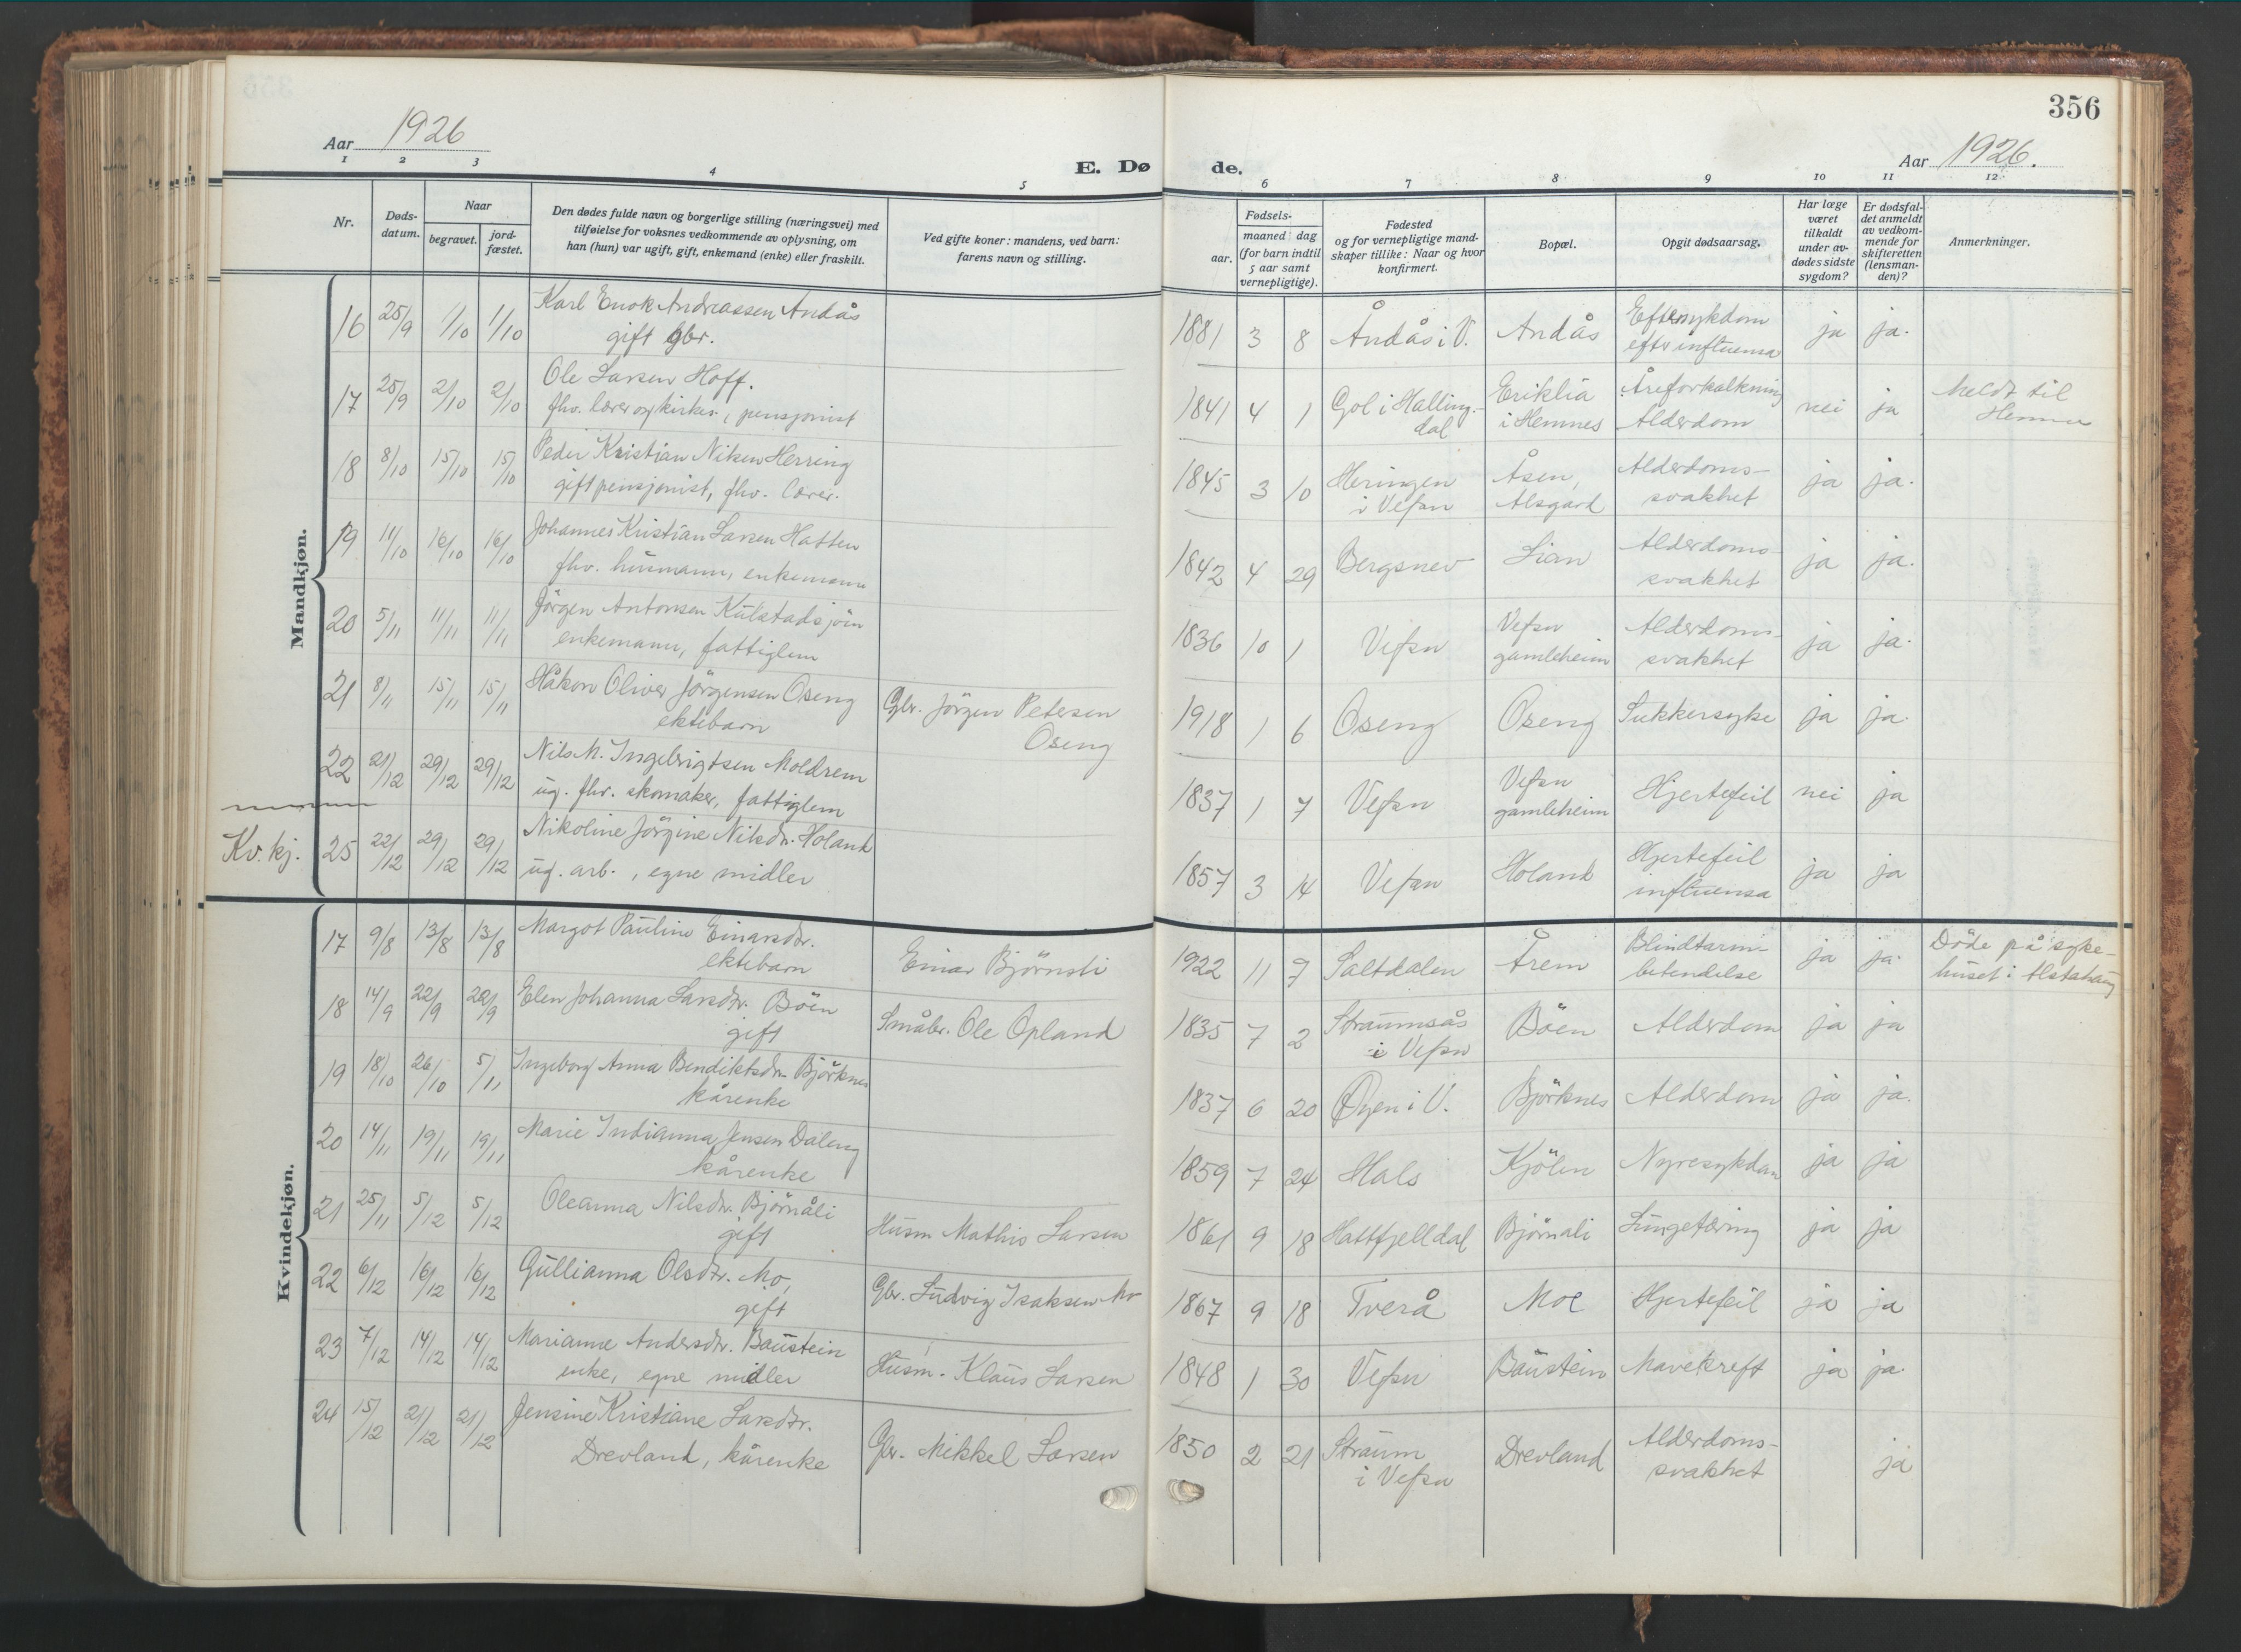 356
Aar 1926
E. Dø de.
Aar 1926.
1 2 3 4 5 6 7 8 9 10 11 12
Nr.
Døds-
datum.
Naar
begravet.
jord-
fæstet.
Den dødes fulde navn og borgerlige stilling (næringsvei) med
tilføielse for voksnes vedkommende av oplysning, om
han (hun) var ugift, gift, enkemand (enke) eller fraskilt.
Ved gifte koner: mandens, ved barn:
farens navn og stilling.
Fødsels-
aar.
maaned dag
(for barn indtil
5 aar samt
vernepligtige).
Fødested
og for vernepligtige mand-
skaper tillike: Naar og hvor
konfirmert.
Bopæl.
Opgit dødsaarsag.
Har læge
været
tilkaldt
under av-
dødes sidste
sygdom?
Er dødsfal-
det anmeldt
av vedkom-
mende for
skifteretten
(lensman-
den)?
Anmerkninger.
Mandkjøn.
16 25/9 1/10 1/10 Karl Enok Andreassen Andås
gift gbr.
1881 3 8 Åndås i V. Andås Eftersykdom
efter influensa ja ja.
17 25/9 2/10 2/10 Ole Larsen Hoff.
fhv. lærer og kirkes., pensjonist
1841 4 1 Gol i Halling-
dal Eriklia
i Hemnes Åreforkalkning
Alderdom nei ja Meldt til
18 8/10 15/10 15/10 Peder Kristian Nilsen Herring
gift pensjonist, fhv. lærer.
1845 3 10 Heringen
i Vefsn Åsen,
Alsgard Alderdoms-
svakhet ja ja.
19 11/10 16/10 16/10 Johannes Kristian Larsen Hatten
fhv. husmann, enkemann
1842 4 29 Bergsnev Lian Alderdoms-
svakhet ja ja.
20 5/11 11/11 11/11 Jörgen Antonsen Kulstadsjöin
enkemann, fattiglem
1836 10 1 Vefsn Vefsn
gamleheim Alderdoms-
svakhet ja ja.
21 8/11 15/11 15/11 Håkon Oliver Jörgensen Oseng
ektebarn
Gbr. Jörgen Petersen
Oseng
1918 1 6 Oseng Oseng Sukkersyke ja ja.
22 21/12 29/12 29/12 Nils M. Ingebrigtsen Moldrem
ug. fhv. skomaker, fattiglem
1837 1 7 Vefsn Vefsn
gamleheim Hjertefeil nei ja
Kv. kj. 25 22/12 29/12 29/12 Nikoline Jörgine Nilsdr. Holand
ug. arb., egne midler
1857 3 14 Vefsn Holand Hjertefeil
influensa ja ja
Kvindekjøn.
17 9/8 13/8 13/8 Margot Pauline Einarsdr.
ektebarn
Einar Björnsti
1922 11 9 Saltdalen Årem Blindtarm-
betendelse ja ja. Döde på syke-
huset i Alstahaug
18 14/9 22/9 22/9 Elen Johanna Larsdr. Böen
gift
Småbr. Ole Opland
1835 7 2 Straumsås
i Vefsn Böen Alderdom ja ja
19 18/10 26/10 5/11 Ingeborg Anna Bendiktsdr. Björknes
kårenke
1837 6 20 Øyen i V. Björknes Alderdom ja ja.
20 14/11 19/11 19/11 Marie Indianna Jensen Daleng
kårenke
1859 7 24 Hals Kjölen Nyresykdom ja ja
21 25/11 5/12 5/12 Oleanna Nilsdr. Björnåli
gift
Husm Mathis Larsen
1861 9 18 Hattfjelldal Björnali Lungetæring ja ja
22 6/12 16/12 16/12 Gullianna Olsdr. Mo,
gift
Gbr. Ludvig Isaksen Mo
1867 9 18 Tverå Moe Hjertefeil ja ja
23 7/12 14/12 14/12 Marianne Andersdr. Baustein
enke, egne midler
Husm. Klaus Larsen
1848 1 30 Vefsn Baustein Mavekreft ja ja.
24 15/12 21/12 21/12 Jensine Kristiane Larsdr.
Drevland, kårenke
Gbr. Mikkel Larsen
1850 2 21 Straum
i Vefsn Drevland Alderdoms-
svakhet ja